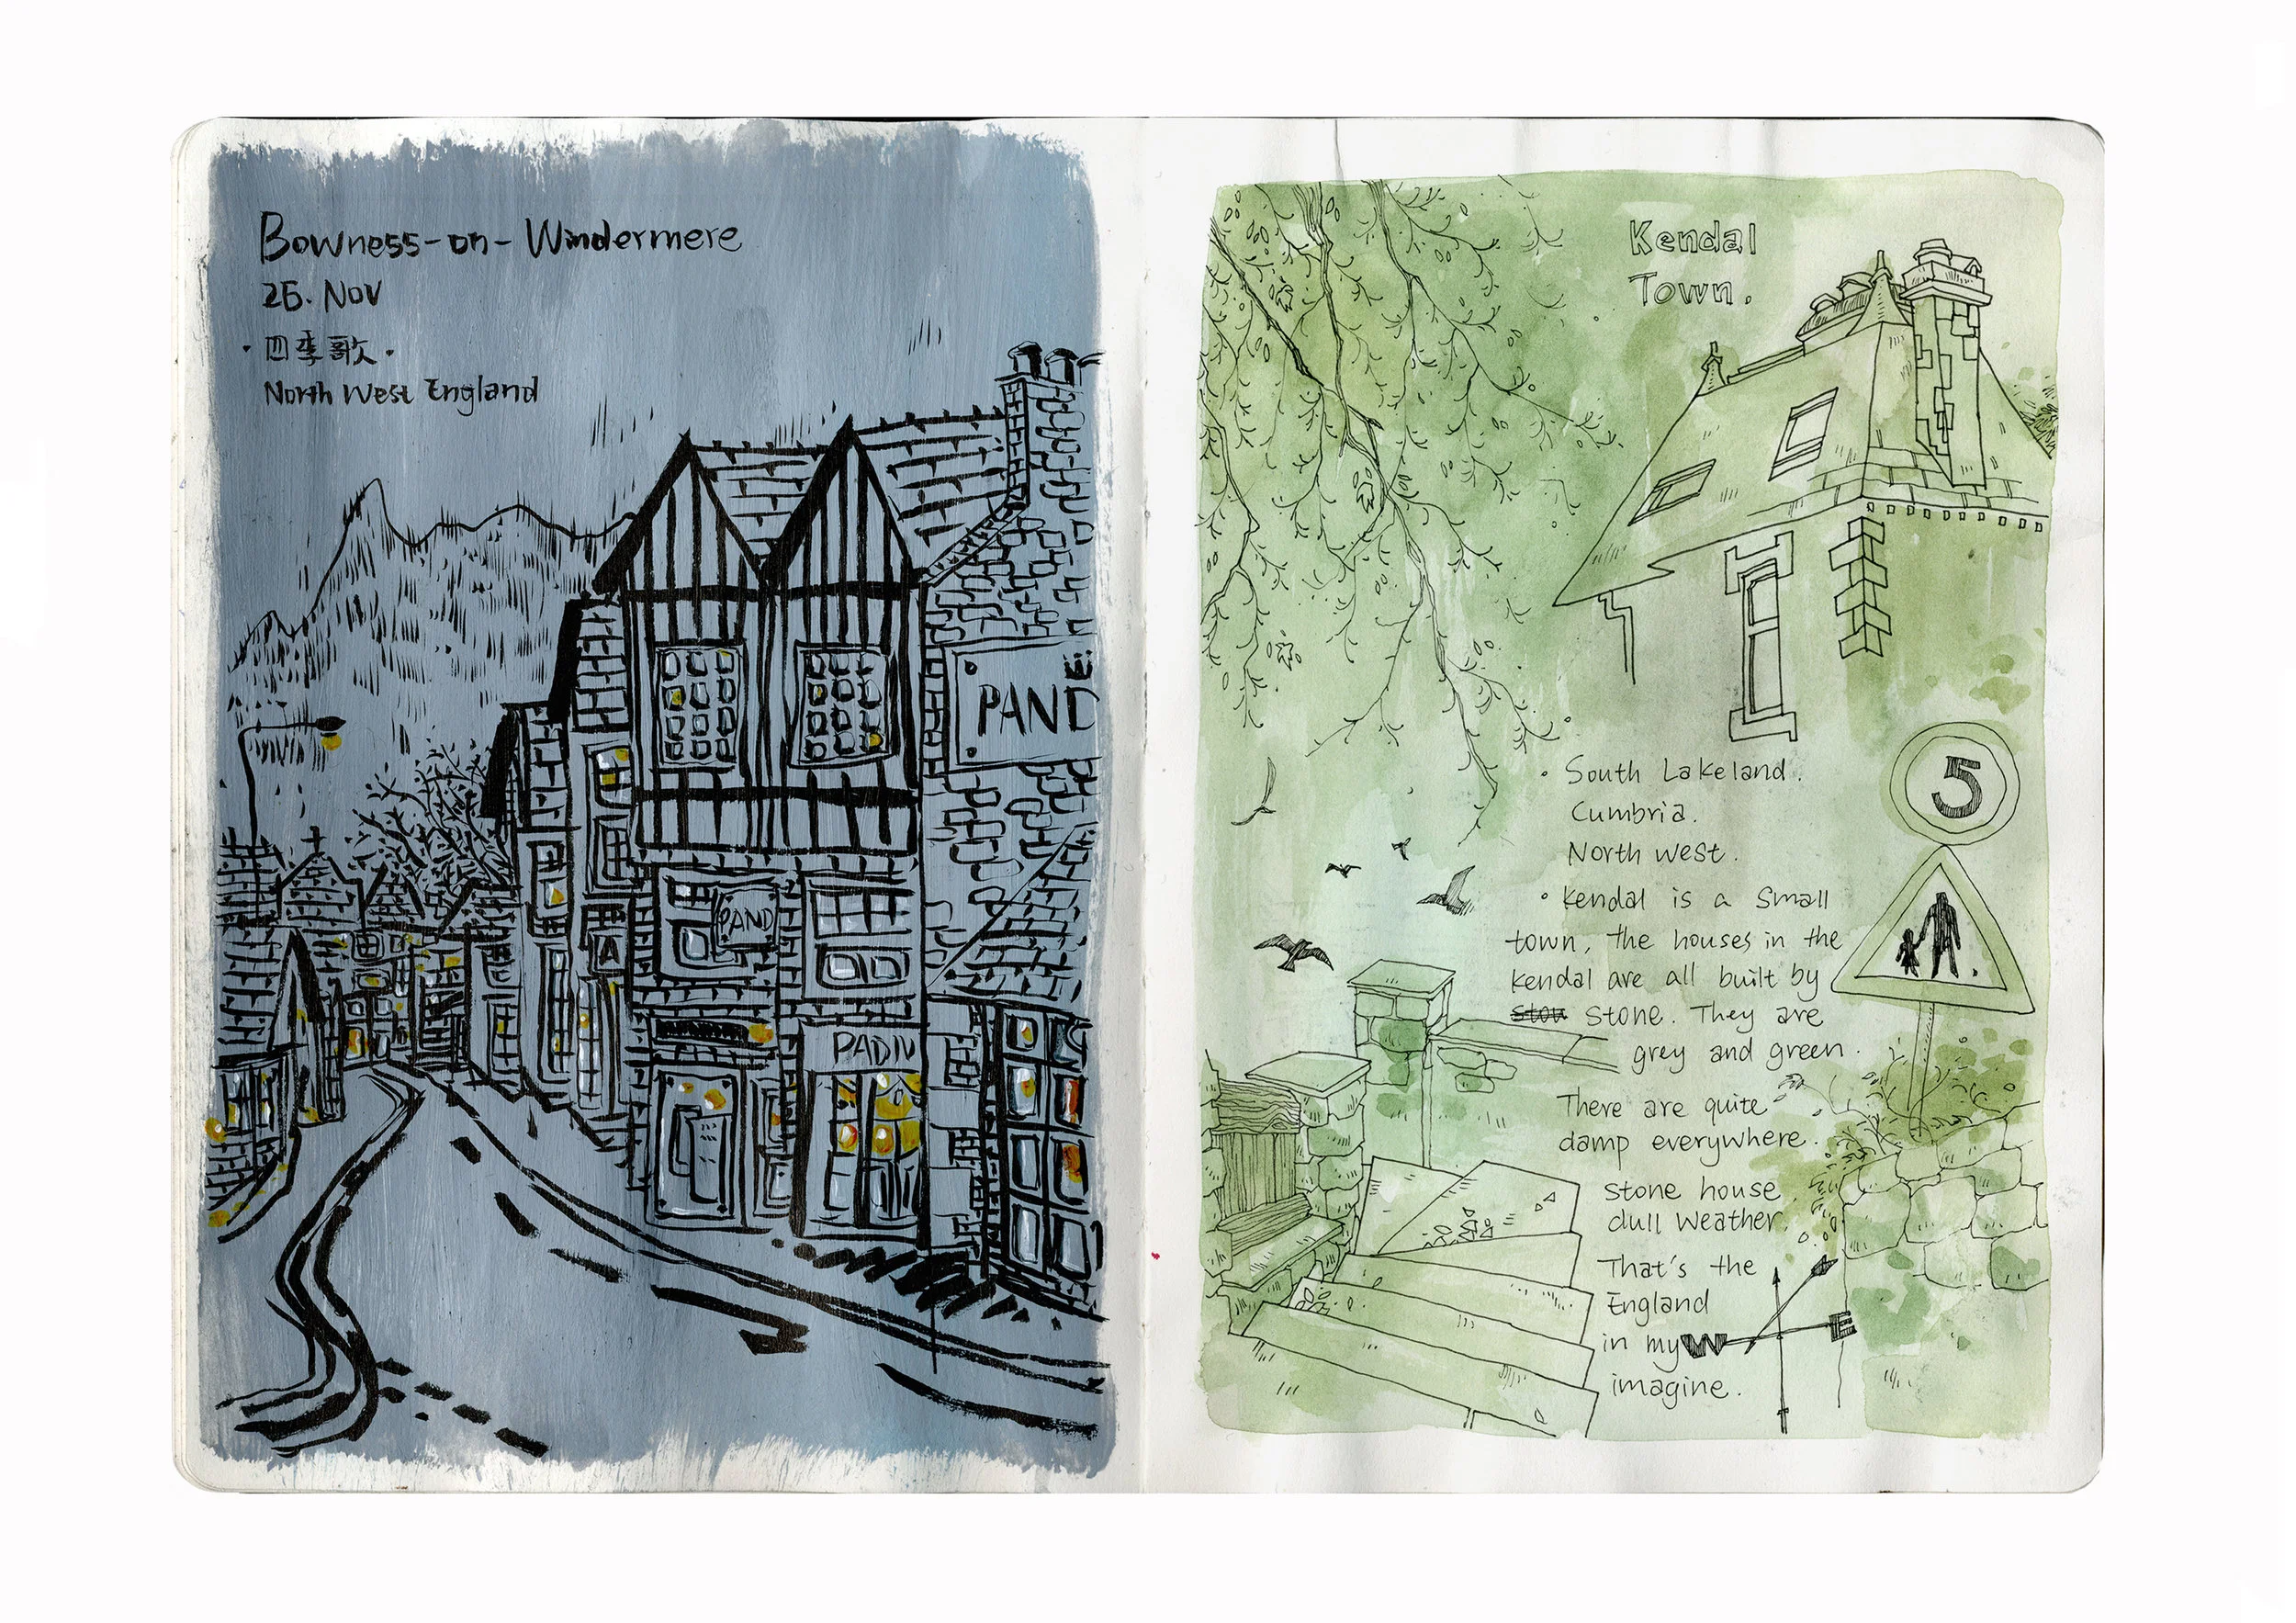 Bowness-on-Windermere
26. Nov
·四季歌·
North West England
PAND
PAND
A
PADIV
Kendal
Town.
5
· South Lakeland.
Cumbria.
North west.
· Kendal is a small
town, The houses in the
kendal are all built by
stone. They are
grey and green.
There are quite
damp everywhere.
stone house.
dull weather.
That's the
England
in my
imagine.
W
E